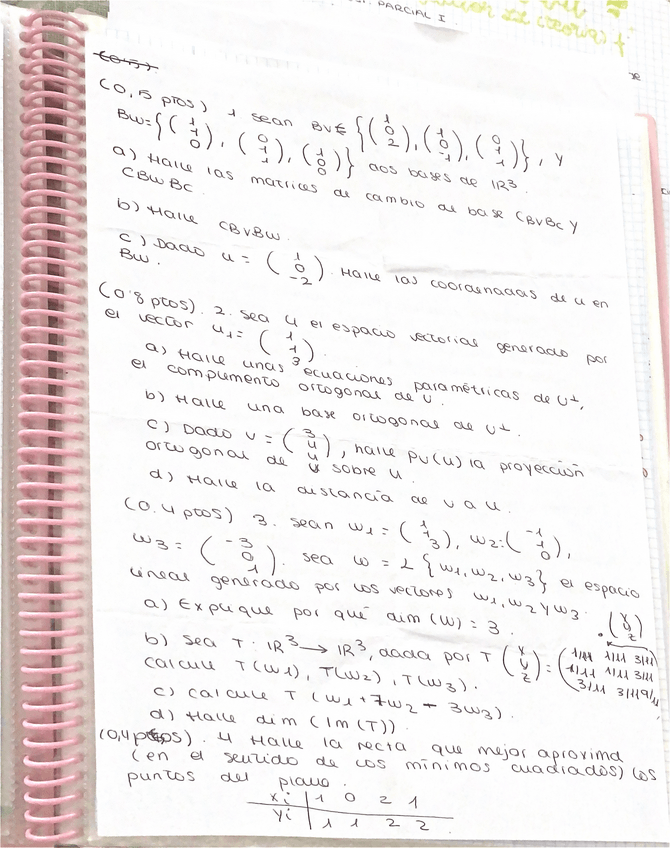 PARCIAL I.
(0,5 ptos) 1 sean Bv = {(1 0 2), (1 0 -1), (0 1 1)}, y
Bw = {(1 1 0), (0 1 1), (1 0 0)} dos bases de IR³.
a) Halle las matrices de cambio de base CBvBc y
CBwBc
b) Halle CBvBw.
c) Dado u = (1 0 -2). Halle las coordenadas de u en
Bw.
(0.8 ptos). 2. Sea U el espacio vectorial generado por
el vector u1 = (1 1 3).
a) Halle unas ecuaciones paramétricas de U⊥,
el complemento ortogonal de U.
b) Halle una base ortogonal de U⊥.
c) Dado v = (3 4 4), halle pu(u) la proyección
ortogonal de v sobre u.
d) Halle la distancia de v a u.
(0.4 ptos) 3. sean w1 = (1 1 3), w2 = (-1 1 0),
w3 = (-3 0 1). sea w = L {w1, w2, w3} el espacio
lineal generado por los vectores w1, w2 y w3.
a) Explique por qué dim (w) = 3.
b) Sea T: IR³ → IR³, dada por T (x y z) = (1/11 1/11 3/11 1/11 1/11 3/11 3/11 3/11 9/11) · (x y z)
calcule T(w1), T(w2), T(w3).
c) calcule T (w1 + 7w2 - 3w3).
d) Halle dim (Im (T)).
(0,4 ptos). 4 Halle la recta que mejor aproxima
(en el sentido de los mínimos cuadrados) los
puntos del plano.
xi | 1 0 2 1
yi | 1 1 2 2